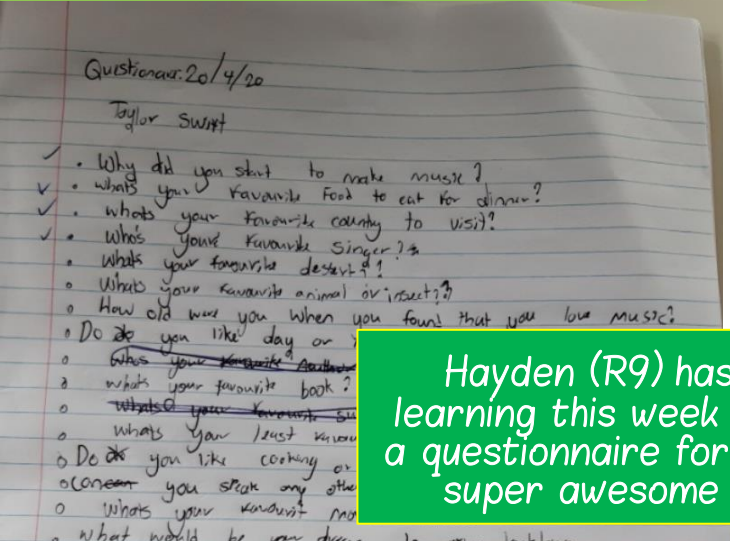 Questionair. 20/4/20
Taylor Swift
• Why did you start to make music?
• whats your favourite food to eat for dinner?
• whats your favourite country to visit?
• Who's youre favourite singer?
• Whats your favourite desert?
• Whats your favourite animal or insect?
• How old were you when you found that you love music?
• Do you like day or
• Whos your favourite Author
• whats your favourite book?
• Whats your favourite
• whats your least favou
• Do you like cooking or
• can you speak any othe
• Whats your favourit mo
• What would be your
Hayden (R9) has
learning this week
a questionnaire for
super awesome